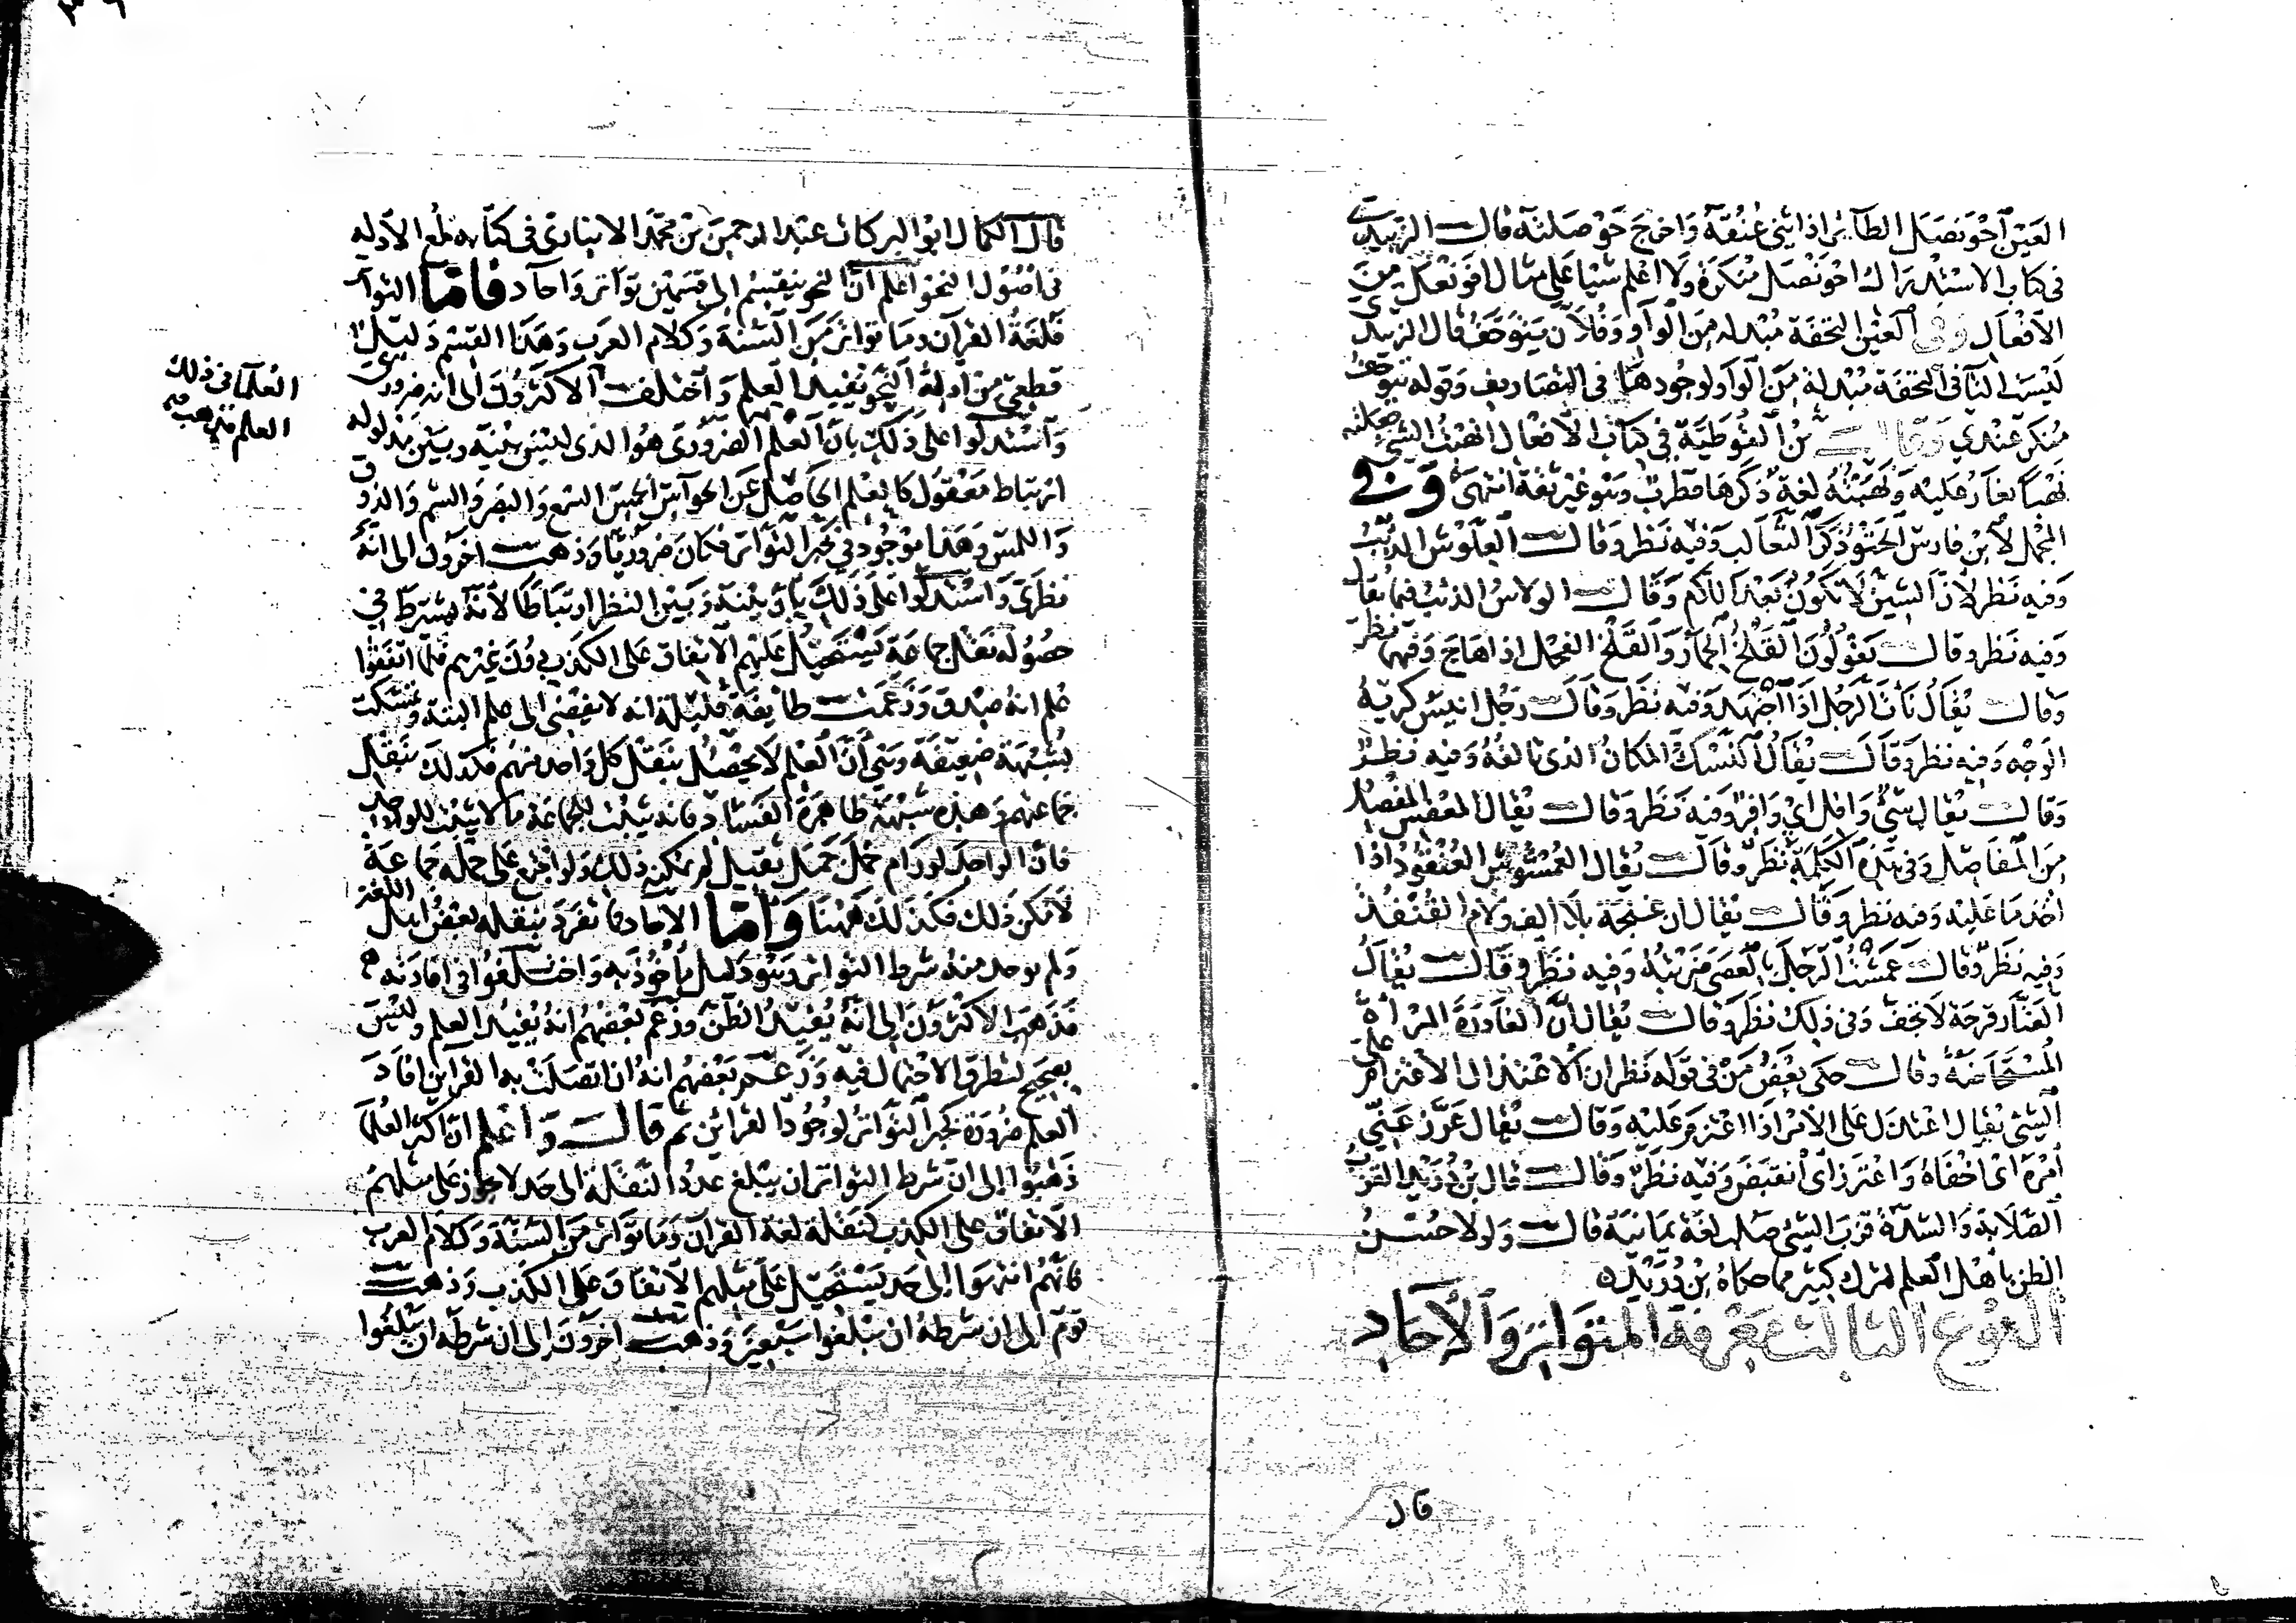 العين احونصل الطائر اذا ثنى عنقه واخرج حوصلته قال الزبيدي
في كتاب الاستدراك احونصل منكرة ولا اعلم شيا على مثال افونعل من
الافعال وفي العين التحفة مبدلة من الواو وفلان يتوحف قال الزبيدي
ليست التآ في التحفة مبدلة من الواو لوجودها في التصاريف وقوله يتوحف
منكر عندي وقال بن القوطية في كتاب الافعال انهت الشي
لغة ذكرها قطرب وهو غير ثقة انتهى وفي
المجمل لابن فارس الحتو ذكر الثعالب وفيه نظر وقال العلوش الذئب
وفيه نظر لان الشين لا تكون بعد اللام وقال الولاس الذئب فيما يقال
وفيه نظر وقال يقولون القلخ الحمار والقلخ الفحل اذا هاج وفيهما نظر
وقال يقال نان الرجل اذا اجتهد وفيه نظر وقال رجل انيس كريه
الوجه وفيه نظر وقال يقال النسك المكان الذى تالفه وفيه نظر
وقال يقال شي وافل اي وافر وفيه نظر وقال يقال المعفس المفصل
من المفاصل وفي هذه الكلمة نظر وقال يقال الغمشوش العنقود اذا
اخذ ما عليه وفيه نظر وقال يقال ان غنجة بلا الف ولام القنفذ
وفيه نظر وقال عمشت الرجل بالعصى ضربته وفيه نظر وقال يقال
الغناد قرحة لا تجف وفى ذلك نظر وقال يقال ان الغادرة المراة
المستحاضة وقال حكى بعض من في قوله نظر ان الاعتذال الاعتزام على
الشي يقال اعتذل على الامر اذا اعتزم عليه وقال يقال عرز عني
امره اى اخفاه واعترز اى انقبض وفيه نظر وقال قال بن دريد القزب
الصلابة والشدة قزب الشي صلب لغة يمانية قال ولولا حسن
الظن باهل العلم لترك كثير مما حكاه بن دريد ه
النوع الثالث معرفة المتواتر والآحاد
قال
قال الكمال ابوا البركات عبد الرحمن بن محمد الانبارى فى كتابه لمع الادله
فى اصول النحو اعلم ان النحو ينقسم الى قسمين تواتر واحاد فاما التواتر
فلغة القران وما تواتر من السنة وكلام العرب وهذا القسم دليل
قطعى من ادلة النحو يفيد العلم واختلف الاكثرون الى انه ضرورى
واستدلوا على ذلك بان العلم الضرورى هو الذى ليس بينه وبين مدلوله
ارتباط معقول كالعلم الحاصل عن الحواس الخمس السمع والبصر والشم والذوق
واللمس وهذا موجود في خبر التواتر فكان ضروريا وذهب اخرون الى انه
نظرى واستدلوا على ذلك بان بينه وبين النظر ارتباطا لانه يشترط في
حصوله نقل جماعة يستحيل عليهم الاتفاق على الكذب دون غيرهم فلما اتفقوا
علم انه صدق وزعمت طايفة قليلة انه لا يفضى الى علم البتة وتمسكت
بشبهة ضعيفة وهي ان العلم لا يحصل بنقل كل واحد منهم فكذلك بنقل
جماعتهم وهذه شبهة ظاهرة الفساد فانه يثبت للجماعة ما لا يثبت للواحد
فان الواحد لو رام حمل حمل ثقيل لم يمكنه ذلك ولو اجتمع على حمله جماعة
لامكن ذلك فكذلك ههنا واما الآحاد فما تفرد بنقله بعض اهل اللغة
ولم يوجد منه شرط التواتر وهو دليل ماخوذ به واختلفوا فى افادته
فذهب الاكثرون الى انه يفيد الظن وزعم بعضهم انه يفيد العلم وليس
بصحيح لتطرق الاحتمال فيه وزعم بعضهم انه ان اتصلت به القراين افاد
العلم ضرورة كخبر التواتر لوجود القرائن ثم قال واعلم ان اكثر العلما
ذهبوا الى ان شرط التواتر ان يبلغ عدد النقلة الى حد لا يجوز على مثلهم
الاتفاق على الكذب كنقلة لغة القرآن وما تواتر من السنة وكلام العرب
فانهم انتهوا الى حد يستحيل على مثلهم الاتفاق على الكذب وذهب
قوم الى ان شرطه ان يبلغوا سبعين وذهب اخرون الى ان شرطه ان يبلغوا
العلما فى ذلك
العلم فذهب